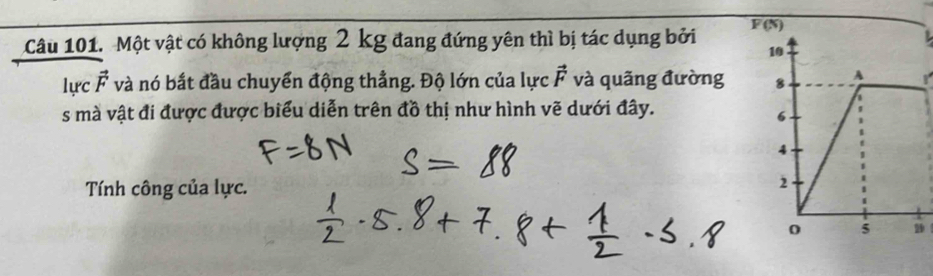 Câu 101. Một vật có không lượng 2 kg đang đứng yên thì bị tác dụng bởi
lực F⃗ và nó bắt đầu chuyển động thẳng. Độ lớn của lực F⃗ và quãng đường
s mà vật đi được được biểu diễn trên đồ thị như hình vẽ dưới đây.
F=8N
S = 88
Tính công của lực.
1/2 · 5.8 + 7.8 + 1/2 · 5.8
F (N)
10
8
A
6
4
2
O
5
10